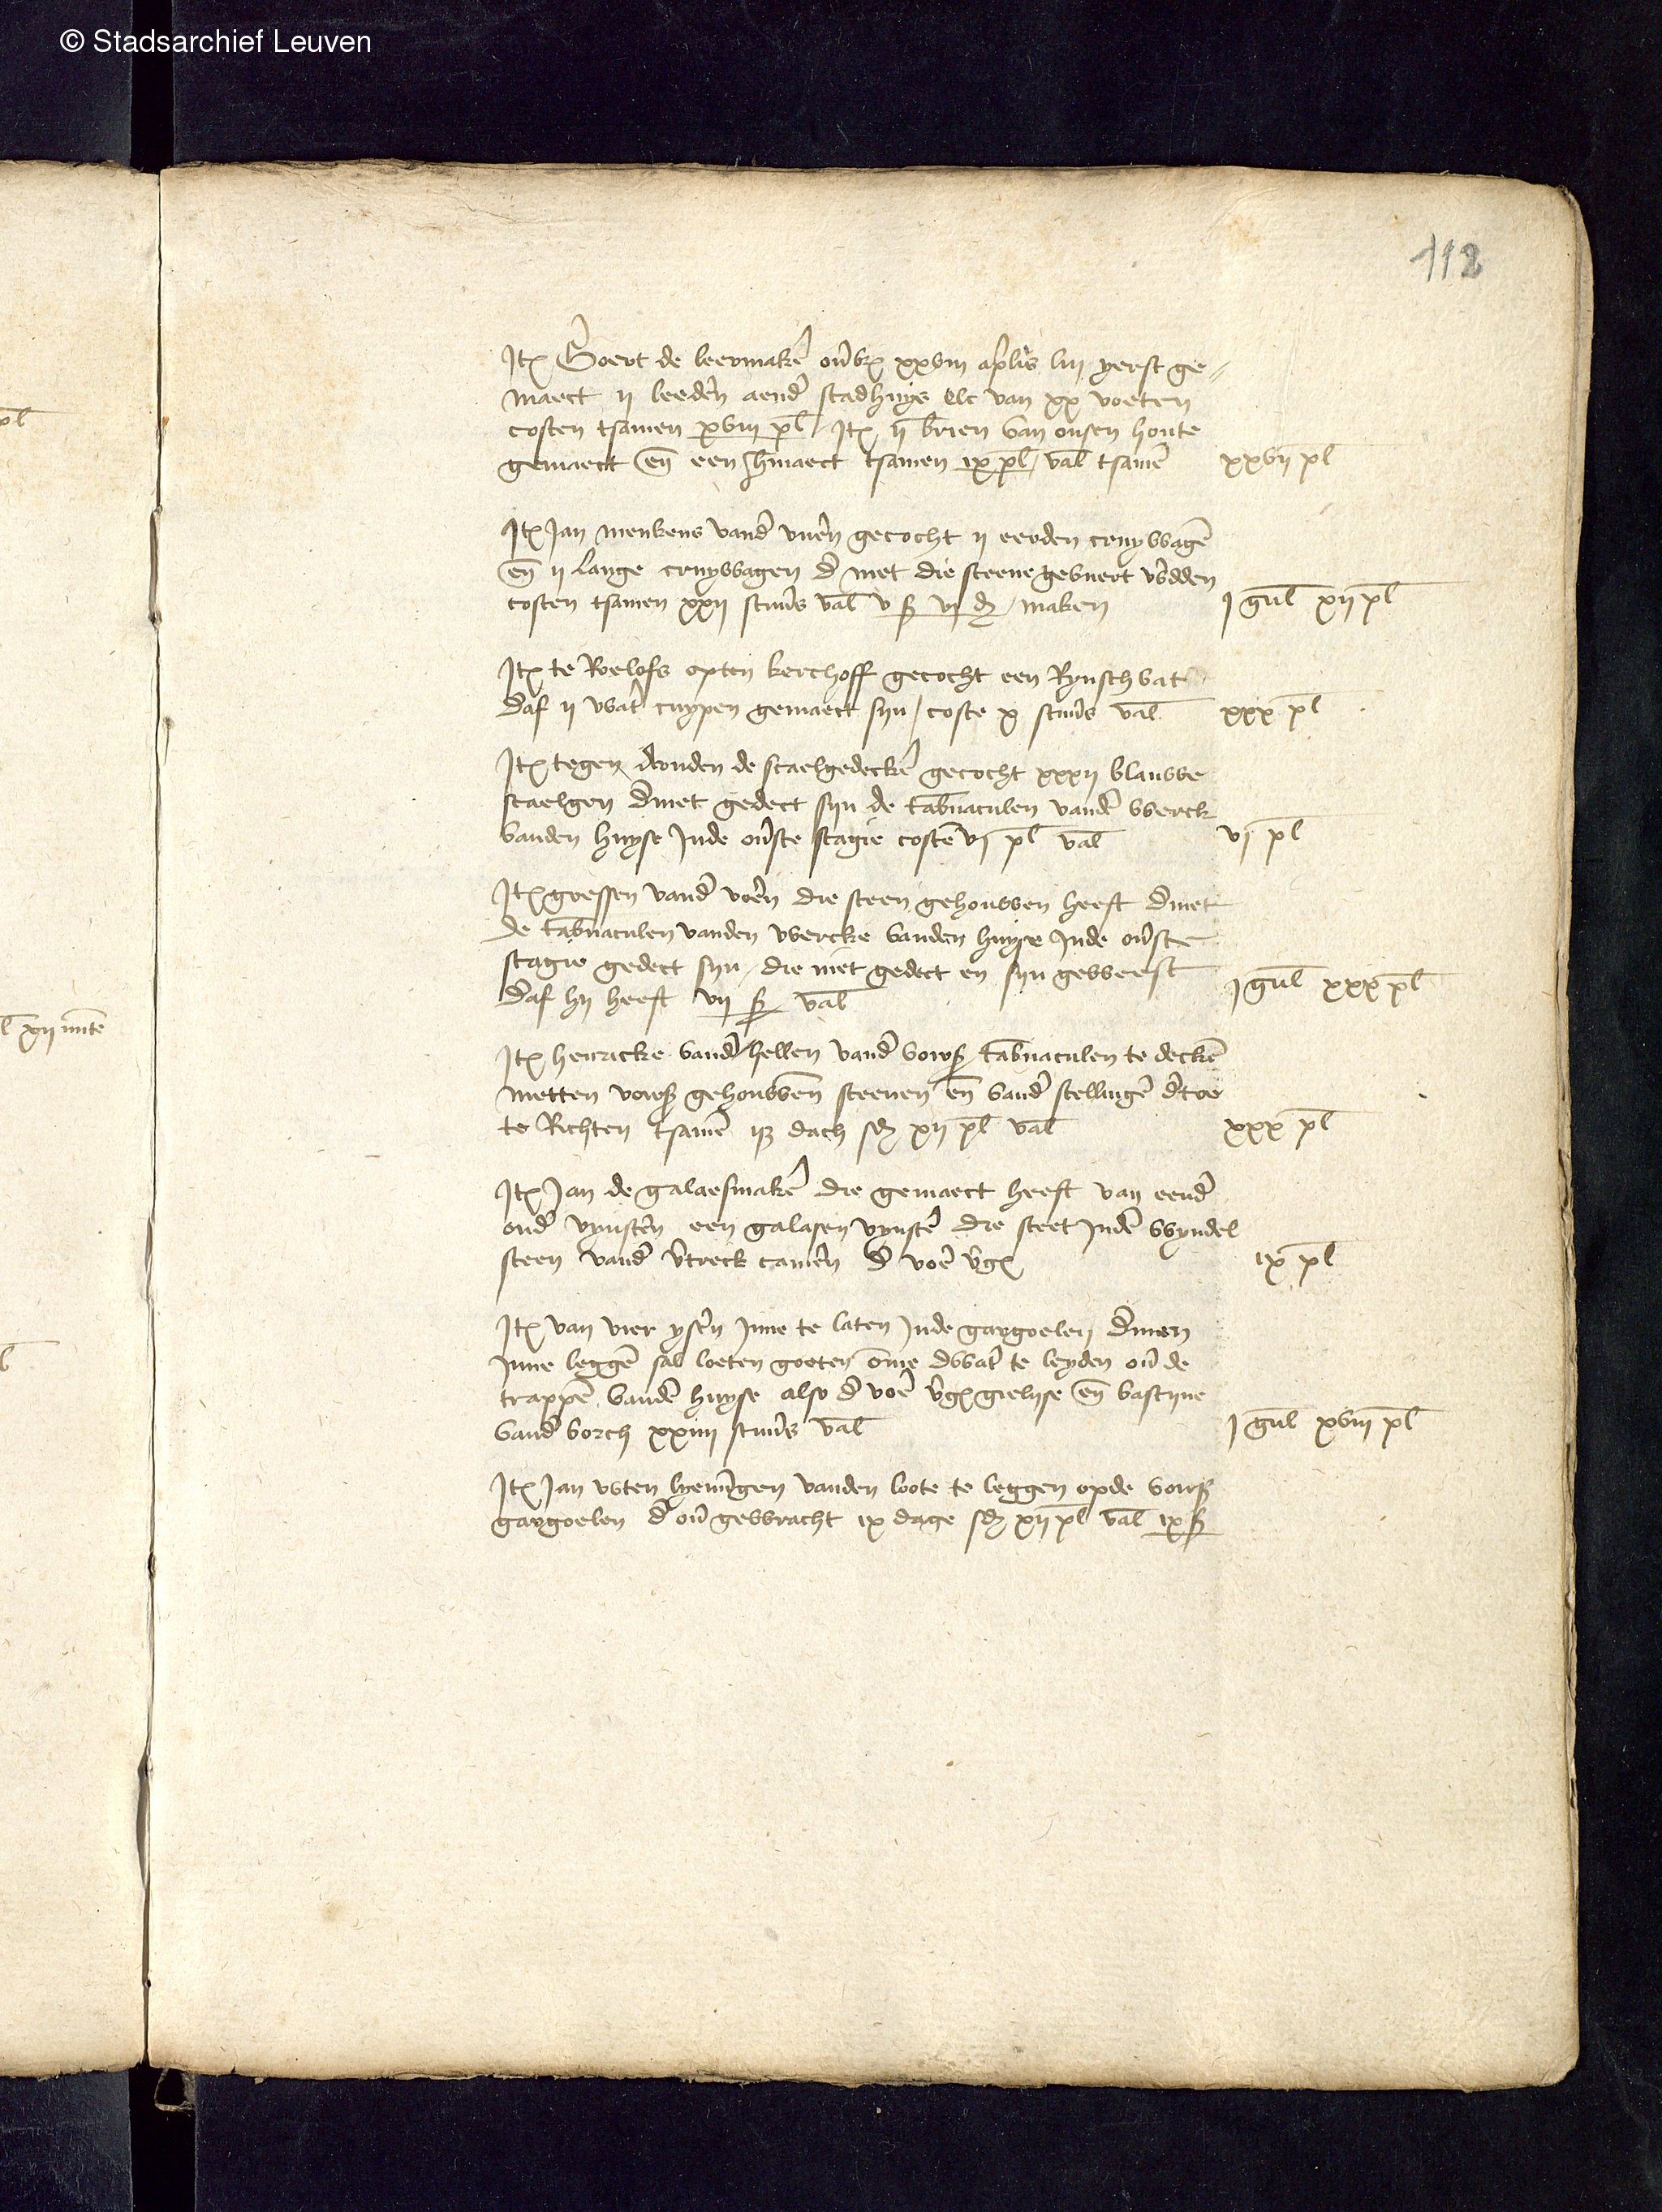 © Stadsarchief Leuven
112
Itm Goert de leermakē ouerbz xxviii aplis liii yerst ge-
maect ii leedeñ aend stadhuys elc van xx voeten
costen tsamen xviii pl / Itm ii brien van onsen houte
gemaect eñ een hmaect tsamen ix pl / val tsamē xxvii pl
Itm Jan menkens vand vueñ gecocht ii eerden cruywagē
eñ ii lange cruywagen d met die steene gevuert wdden
costen tsamen xxii stuvs val v ß vi d maken i gul xii pl
Itm te Roelofs opten kerchoff gecocht een Rynsch vat
daf ii wat cuypen gemaect syn / coste x stuvs val xxx pl
Itm tegen wouden de scaelgedeckē gecocht xxxii blauwe
scaelgen dmet gedect syn de tabnaculen vandē werck
vanden huyse Inde onste stagie costē vi pl val vi pl
Itm goessen vand voeñ die steen gehouwen heeft dmet
de tabnaculen vanden wercke vanden huyse Inde onste
stagie gedect syn / die niet gedect en syn geweest
daf hy heeft vii ß val i gul xxx pl
Itm henricke vand hellen vand vorß tabnaculen te deckē
metten vorß gehouwen steenen eñ vand stellingē dtoe
te Richten tsamē iiß dach sd xii pl val xxx pl
Itm Jan de galaesmakē die gemaect heeft van eend
oud vynsteñ een galasen vynstē die steet Indē wyndel
steen vand vtreck cameñ d voē vgz ix pl
Itm van vier yseñ Inne te laten Inde gargoelen dmen
Inne leggē sal loeten goeten ome dwat te leyden ouer de
trappē vandē huyse also d voē vgz gielijse eñ bastijne
vand borch xxiiii stuvs val i gul xviii pl
Itm Jan vten hemingen vanden loote te leggen opde vorß
gargoelen d ouer gewracht ix dage sd xii pl val ix ß